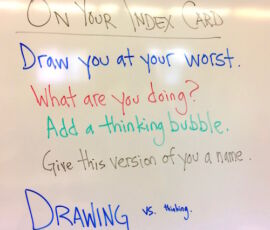 On Your Index Card
Draw you at your worst.
What are you doing?
Add a thinking bubble.
Give this version of you a name.
DRAWING vs. thinking.